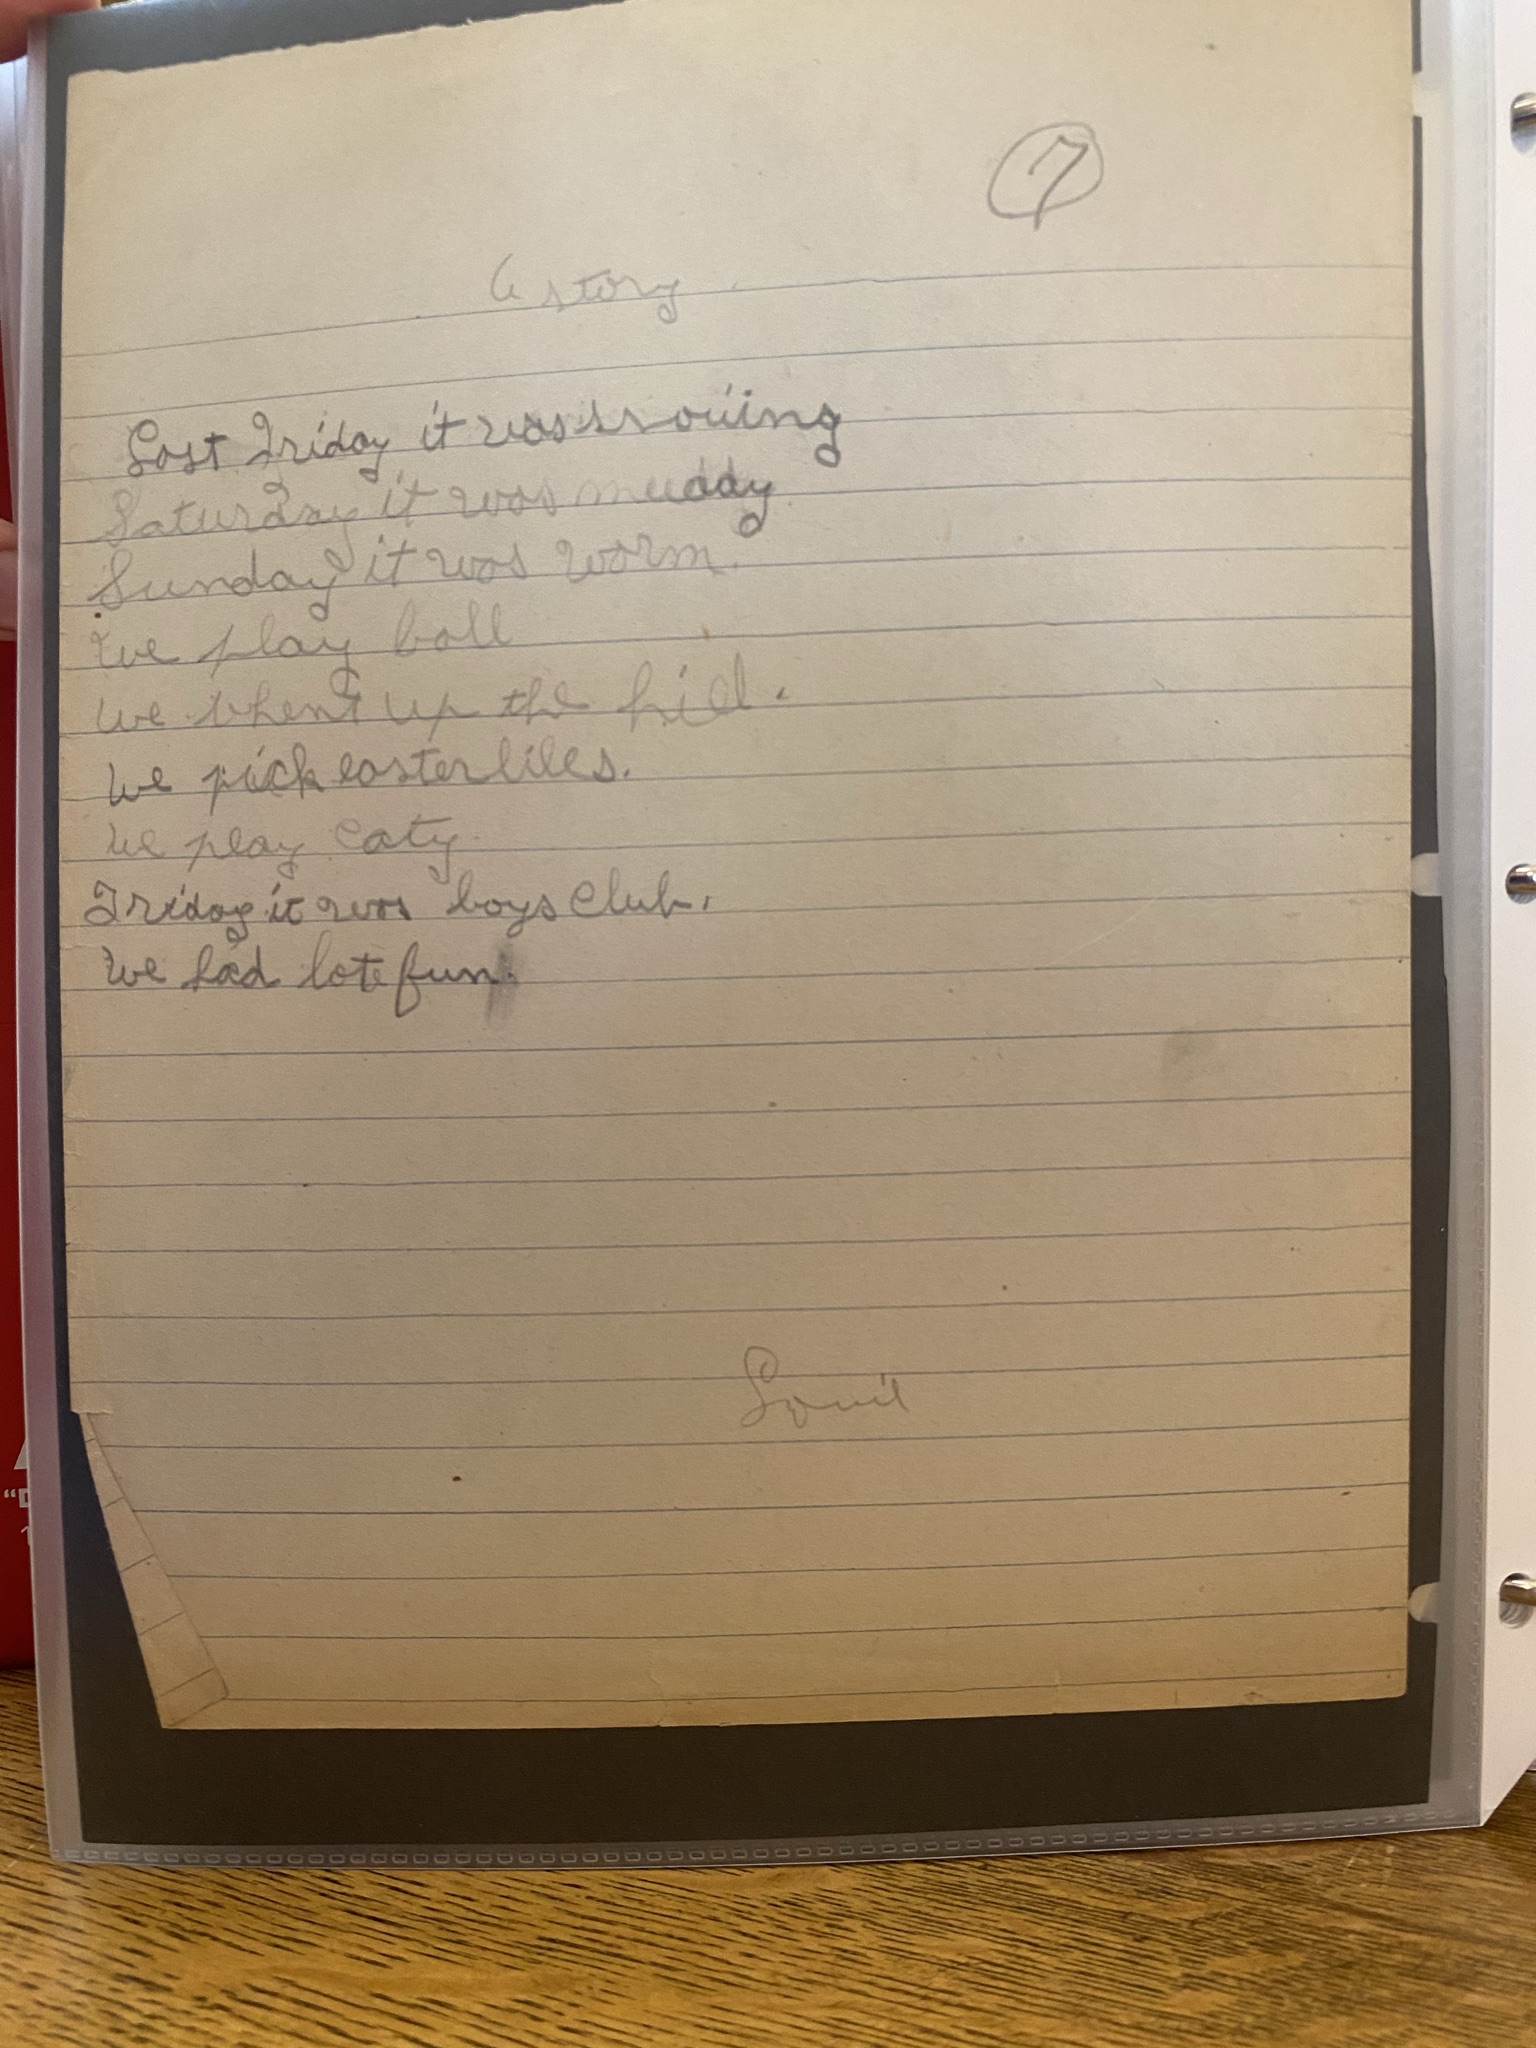 7
A story
Last Friday it was snowing
Saturday it was muddy
Sunday it was worm.
We play ball
we whent up the hill.
We pick easter liles.
We play caty
Friday it was boys Club.
We had lote fun.